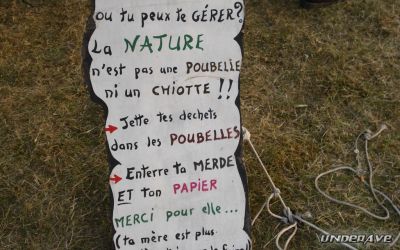 ou tu peux te GÉRER?
La NATURE
n'est pas une POUBELLE
ni un CHIOTTE !!
Jette tes dechets
dans les POUBELLES
Enterre ta MERDE
ET ton PAPIER
MERCI pour elle...
(ta mère est plus
UNDERAVE